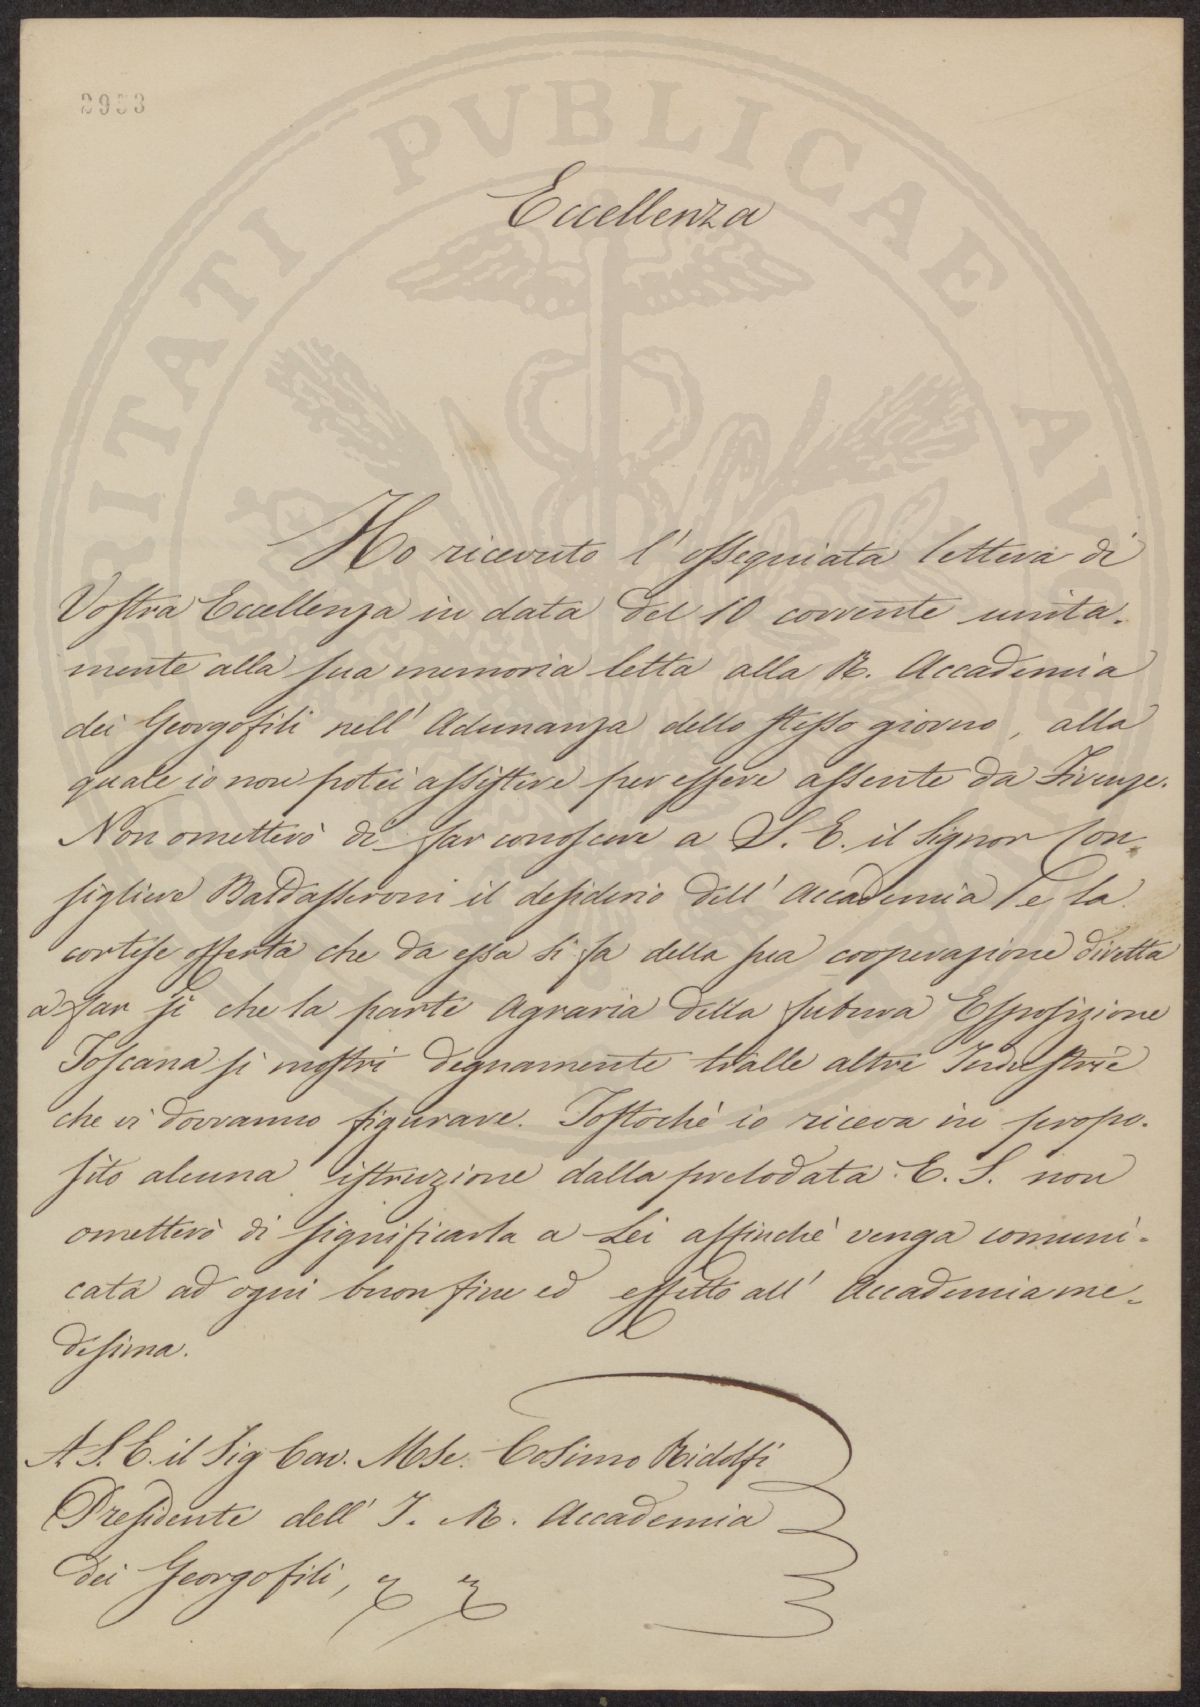 2953
PVBLICAE
Eccellenza
Ho ricevuto l'ossequiata lettera di
Vostra Eccellenza in data del 10 corrente unita-
mente alla sua memoria letta alla R. Accademia
dei Georgofili nell'Adunanza dello stesso giorno, alla
quale io non potei assistere per essere assente da Firenze.
Non ometterò di far conoscere a S. E. il Signor Con-
sigliere Baldasseroni il desiderio dell'Accademia e la
cortese offerta che da essa si fa della sua cooperazione diretta
a far sì che la parte Agraria della futura Esposizione
Toscana si mostri degnamente tralle altre Industrie
che vi dovranno figurare. Tostochè io riceva in propo-
sito alcuna istruzione dalla prelodata E. S. non
ometterò di significarla a Lei affinchè venga comuni-
cata ad ogni buon fine ed effetto all'Accademia me-
desima.
A. S. E. il Sig Cav. Mse. Cosimo Ridolfi
Presidente dell'I. R. Accademia
dei Georgofili,